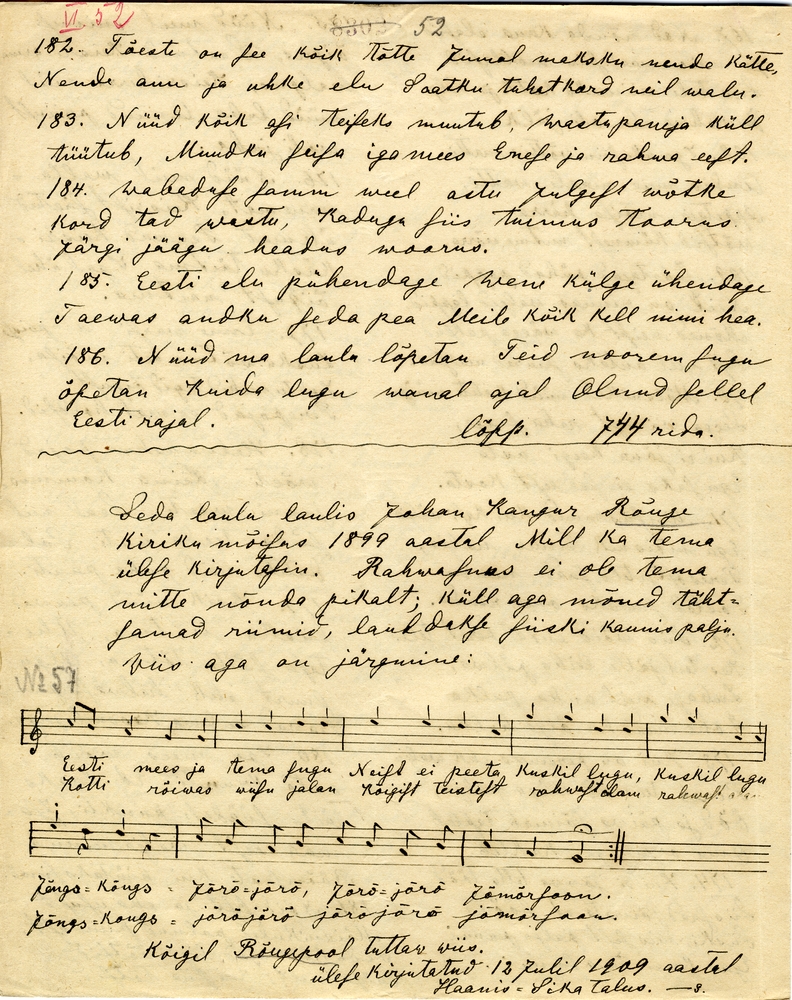 VI 52
52
182. Tõeste on see kõik tõtte Jumal maksku nende kätte,
Nende ann ja uhke elu Saatku tuhat kord neil walu.
183. Nüüd kõik asi teiseks muutub, wastupaneja küll
tüütub, Muudku seisa iga mees Enese ja rahwa eest.
184. wabaduse samm weel astu julgest wõtke
kord tad wastu, Kadugu siis tuimus toorus
järgi jäägu headus woorus.
185. Eesti elu pühendage Wene külge ühendage
Taewas andku seda pea Meile kõik kell nimi hea.
186. Nüüd ma laulu lõpetan Teid noorem sugu
õpetan Kuida lugu wanal ajal Olnud sellel
Eesti rajal.
lõpp. 744 rida.
Seda laulu laulis Johan Kangur Rõuge
Kiriku mõisas 1899 aastal Mill ka tema
ülese kirjutasin. Rahwasuus ei ole tema
mitte nõnda pikalt; küll aga mõned täht=
samad riimid, lauldakse siiski kaunis palju.
Viis aga on järgmine:
№ 57
Eesti mees ja tema sugu Neist ei peeta kuskil lugu, kuskil lugu
Kotti rõiwas wiisu jalan Kõigist teistest rahwast alam rahwast
Jõngs=Kõngs = jõrõ=jõrõ, jõrõ=jõrõ jõmõrsoon.
Jõngs=Kongs = jõrõjõrõ jõrõjõrõ jõmõrsoon.
Kõigil Rõugepool tuttaw wiis.
ülese kirjutatud 12 Julil 1909 aastal
Haanis=Sika talus.